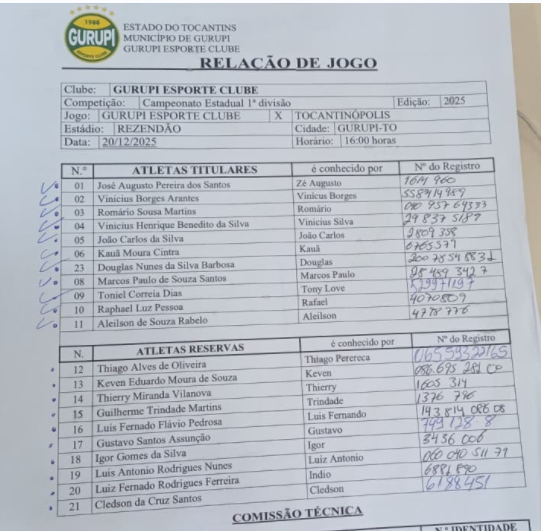 1988
GURUPI
ESPORTE CLUBE
ESTADO DO TOCANTINS
MUNICÍPIO DE GURUPI
GURUPI ESPORTE CLUBE
RELAÇÃO DE JOGO
Clube: GURUPI ESPORTE CLUBE
Competição: Campeonato Estadual 1ª divisão Edição: 2025
Jogo: GURUPI ESPORTE CLUBE X TOCANTINÓPOLIS
Estádio: REZENDÃO Cidade: GURUPI-TO
Data: 20/12/2025 Horário: 16:00 horas
N.º ATLETAS TITULARES é conhecido por Nº do Registro
01 José Augusto Pereira dos Santos Zé Augusto
02 Vinicius Borges Arantes Vinicus Borges
03 Romário Sousa Martins Romário
04 Vinicius Henrique Benedito da Silva Vinicius Silva
05 João Carlos da Silva João Carlos 2809358
06 Kauã Moura Cintra Kauã 6765377
23 Douglas Nunes da Silva Barbosa Douglas
08 Marcos Paulo de Souza Santos Marcos Paulo
09 Toniel Correia Dias Tony Love
10 Raphael Luz Pessoa Rafael 4070809
11 Aleilson de Souza Rabelo Aleilson 4778776
N. ATLETAS RESERVAS é conhecido por Nº do Registro
12 Thiago Alves de Oliveira Thiago Perereca
13 Keven Eduardo Moura de Souza Keven
14 Thierry Miranda Vilanova Thierry 1605 314
15 Guilherme Trindade Martins Trindade 1376 796
16 Luis Fernado Flávio Pedrosa Luis Fernando
17 Gustavo Santos Assunção Gustavo
18 Igor Gomes da Silva Igor 3436 006
19 Luis Antonio Rodrigues Nunes Luiz Antonio
20 Luiz Fernado Rodrigues Ferreira Indio
21 Cledson da Cruz Santos Cledson 6188451
COMISSÃO TÉCNICA
N.º IDENTIDADE